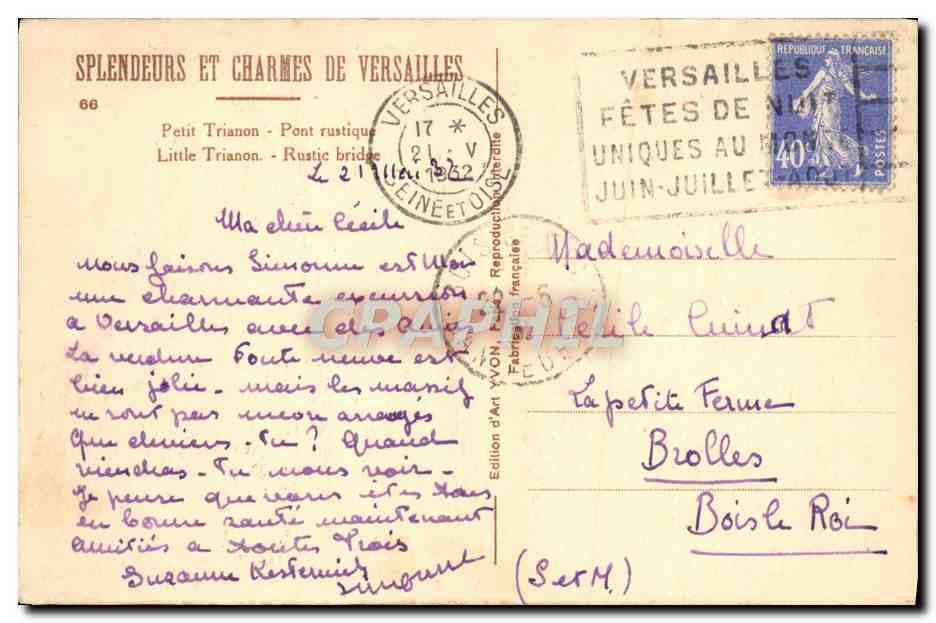 SPLENDEURS ET CHARMES DE VERSAILLES
66
Petit Trianon - Pont rustique
Little Trianon. - Rustic bridge
Le 21 Mai 32
Ma chère Cécile
nous faisons Simonne est Moi
une charmante excursion
a Versailles avec des amis
La verdure toute neuve est
bien jolie - mais les massifs
ne sont pas encore arrangés
que deviens-tu? Quand
viendras-tu nous voir -
Je pense que vous êtes tous
en bonne santé maintenant
amitiés a toutes trois
Suzanne
VERSAILLES
17 *
21 - V
1932
SEINE ET OISE
Edition d'Art YVON, Paris - Reproduction interdite
Fabrication française
VERSAILLES
FÊTES DE NUIT
UNIQUES AU MONDE
JUIN-JUILLET-AOU
RÉPUBLIQUE FRANÇAISE
40c
POSTES
CARAPHIL
Mademoiselle
Cécile Guinot
La petite Ferme
Brolles
Bois le Roi
(S et M.)